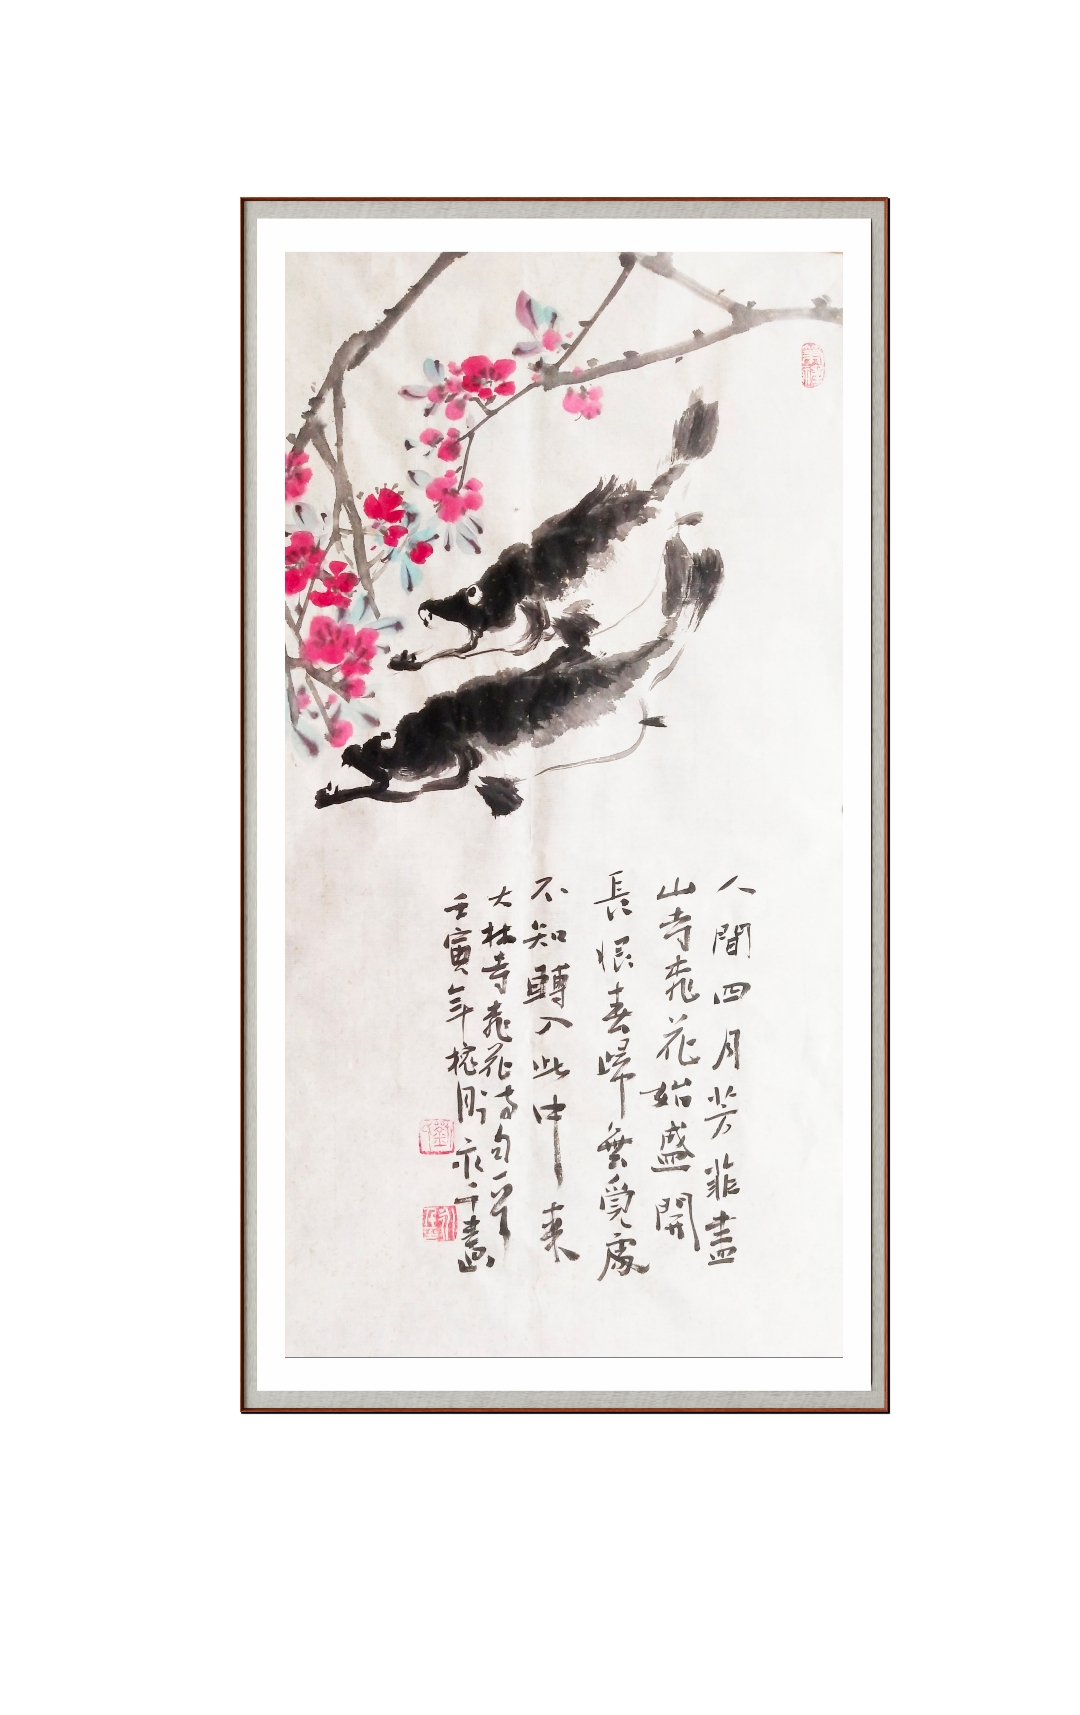 人間四月芳菲盡
山寺桃花始盛開
長恨春歸無覓處
不知轉入此中来
大林寺桃花诗句
壬寅年 永平畫